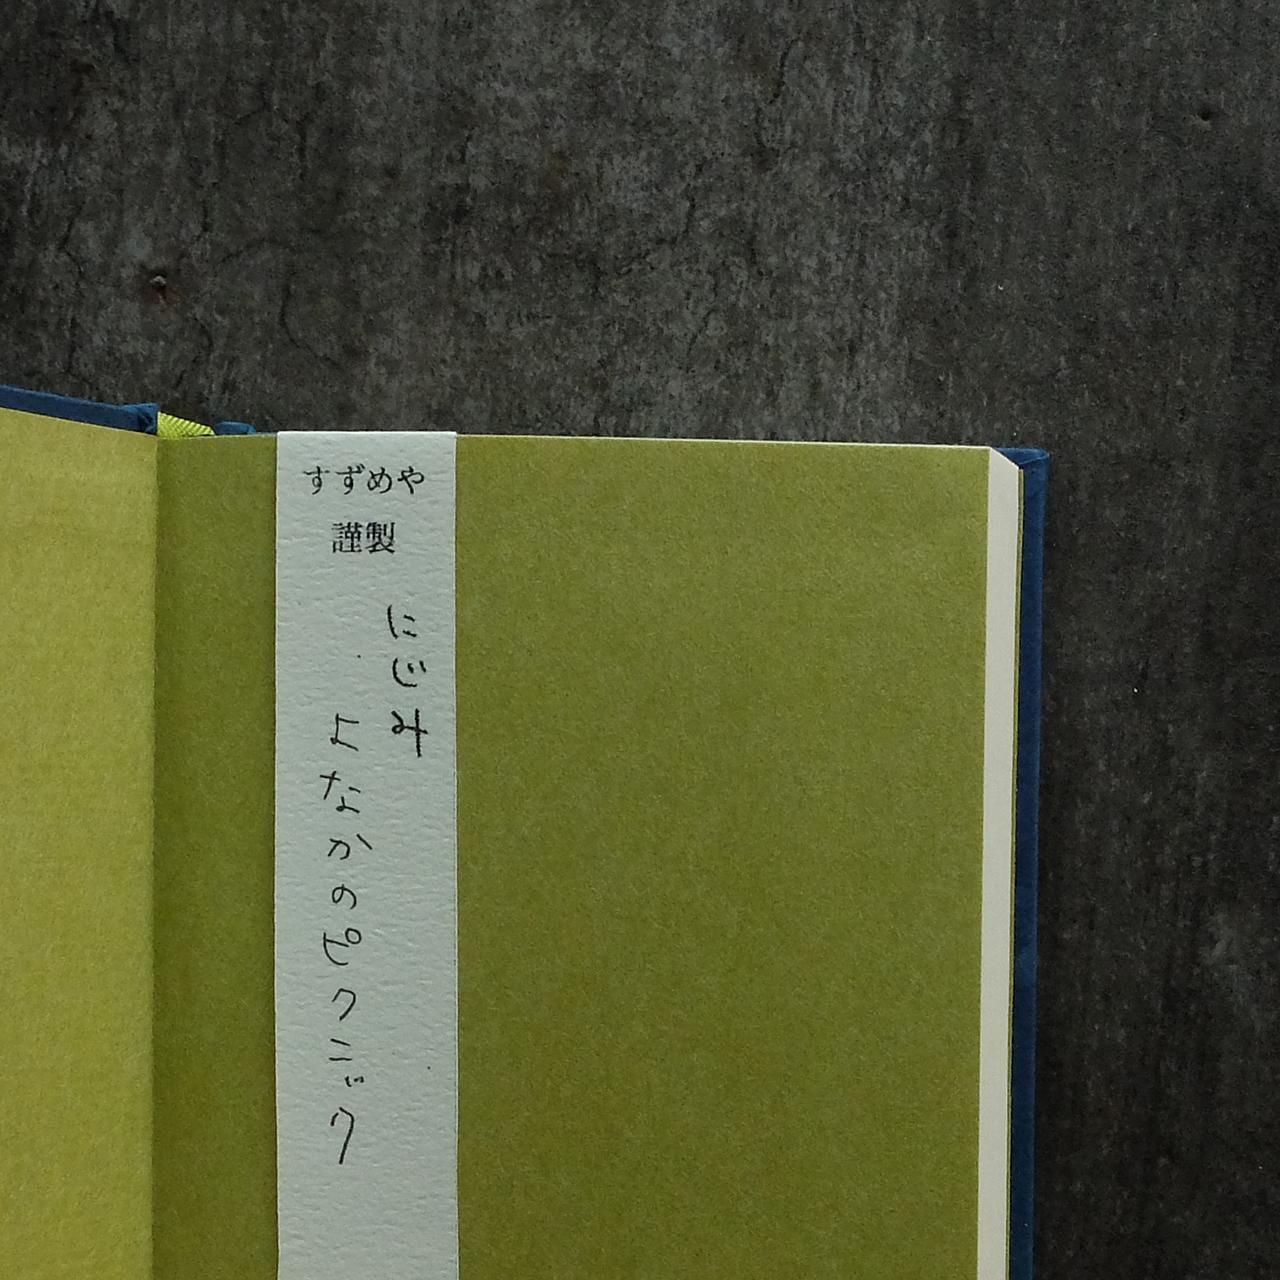 すずめや
謹製
にじみ
よなかのピクニック